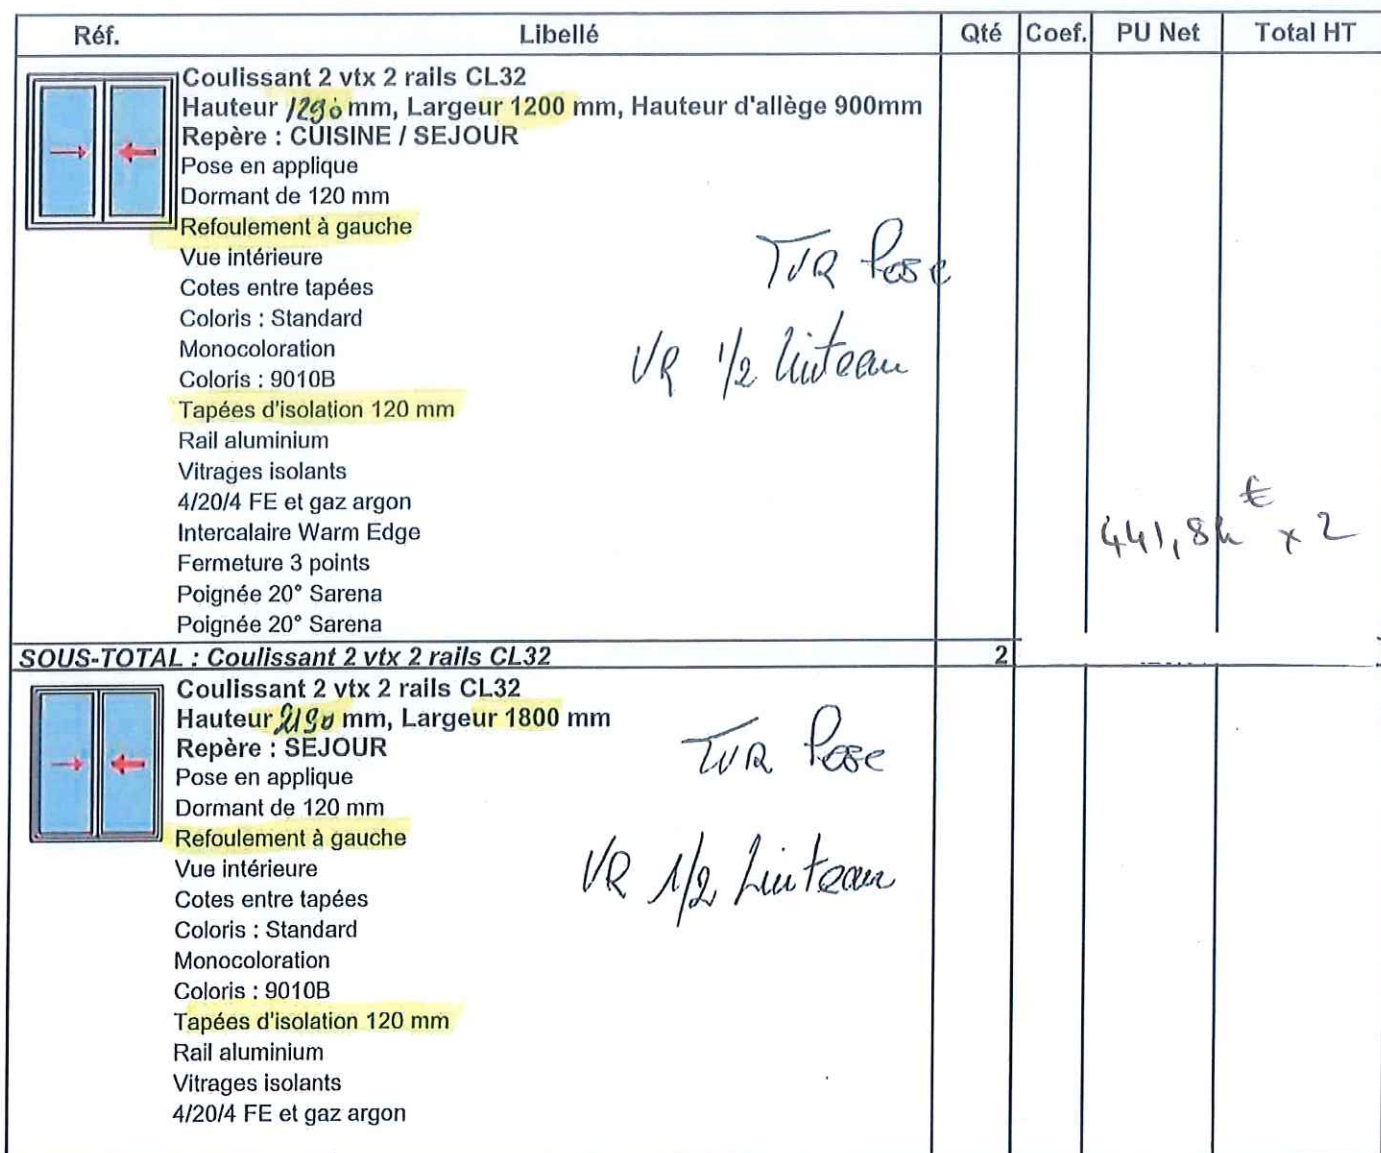 Réf. Libellé Qté Coef. PU Net Total HT
Coulissant 2 vtx 2 rails CL32
Hauteur 1290 mm, Largeur 1200 mm, Hauteur d'allège 900mm
Repère : CUISINE / SEJOUR
Pose en applique
Dormant de 120 mm
Refoulement à gauche
Vue intérieure
TVR Pose
Cotes entre tapées
Coloris : Standard
Monocoloration
VR 1/2 linteau
Coloris : 9010B
Tapées d'isolation 120 mm
Rail aluminium
Vitrages isolants
4/20/4 FE et gaz argon
Intercalaire Warm Edge
€ x 2
Fermeture 3 points
Poignée 20° Sarena
Poignée 20° Sarena
SOUS-TOTAL : Coulissant 2 vtx 2 rails CL32 2
Coulissant 2 vtx 2 rails CL32
Hauteur 2190 mm, Largeur 1800 mm
Repère : SEJOUR
TVR Pose
Pose en applique
Dormant de 120 mm
Refoulement à gauche
Vue intérieure
VR 1/2 Linteau
Cotes entre tapées
Coloris : Standard
Monocoloration
Coloris : 9010B
Tapées d'isolation 120 mm
Rail aluminium
Vitrages isolants
4/20/4 FE et gaz argon